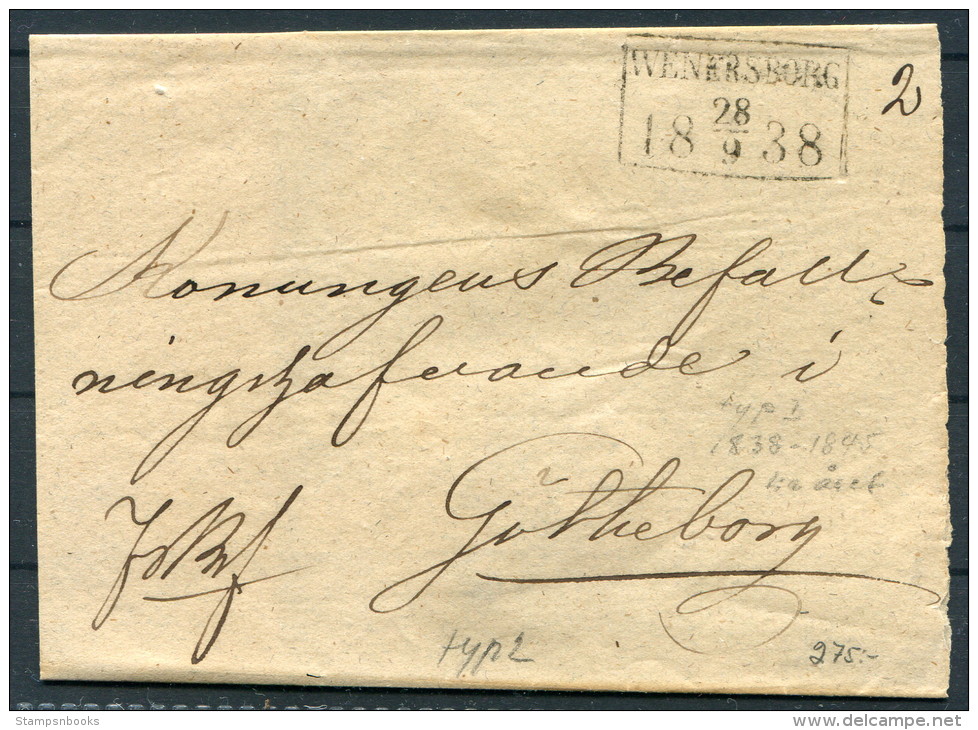 WENERSBORG
2
28
18 38
9
Konungens Befall,
ningshafvande i
typ I
1838-1845
året
Götheborg
typ 2
275:-
Stampsnbooks
www.delcampe.net